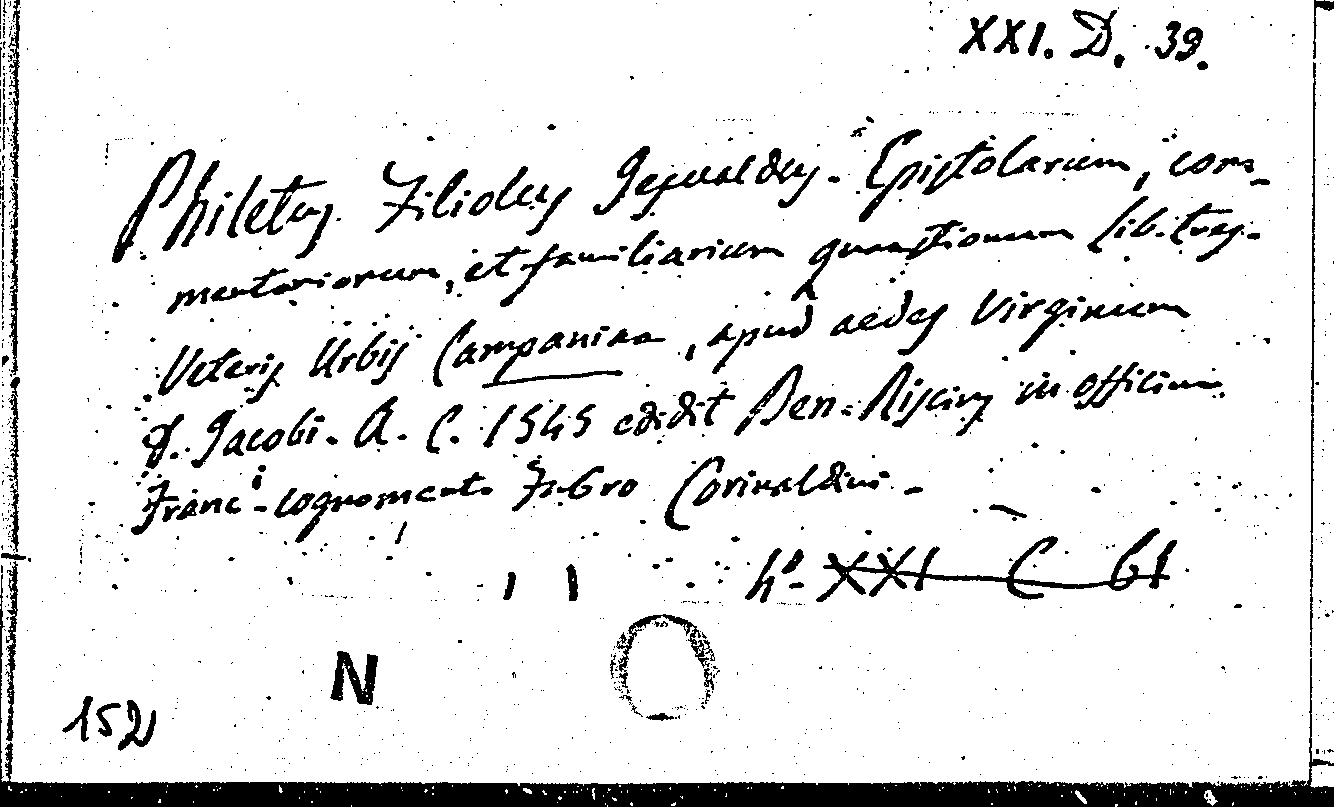 XXI. D. 39.
Philetus Filiolus Gesualdus. Epistolarum, com_
mentariorum, et familiarium quaestionum lib. tres.
Veteris Urbis Campaniae, apud aedes Virginum
S. Jacobi. A. C. 1545 edidit Ben. Riscius in officina
Franci. cognomento Fabro Corinaldini.
4º. XXI C 61
N
152